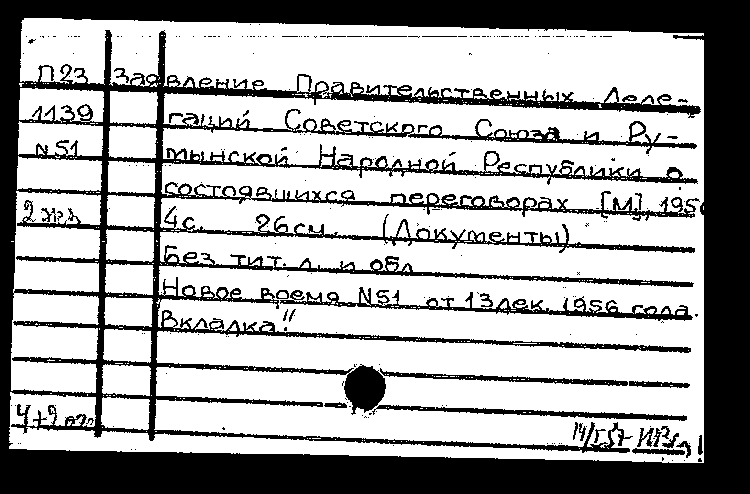 П23 Заявление Правительственных Деле-
1139 гаций Советского Союза и Ру-
N51 мынской Народной Республики о
состоявшихся переговорах [М], 1956
2 экз 4с. 26см. (Документы).
Без тит. л. и обл
Новое время N51 от 13 дек. 1956 года.
Вкладка!!